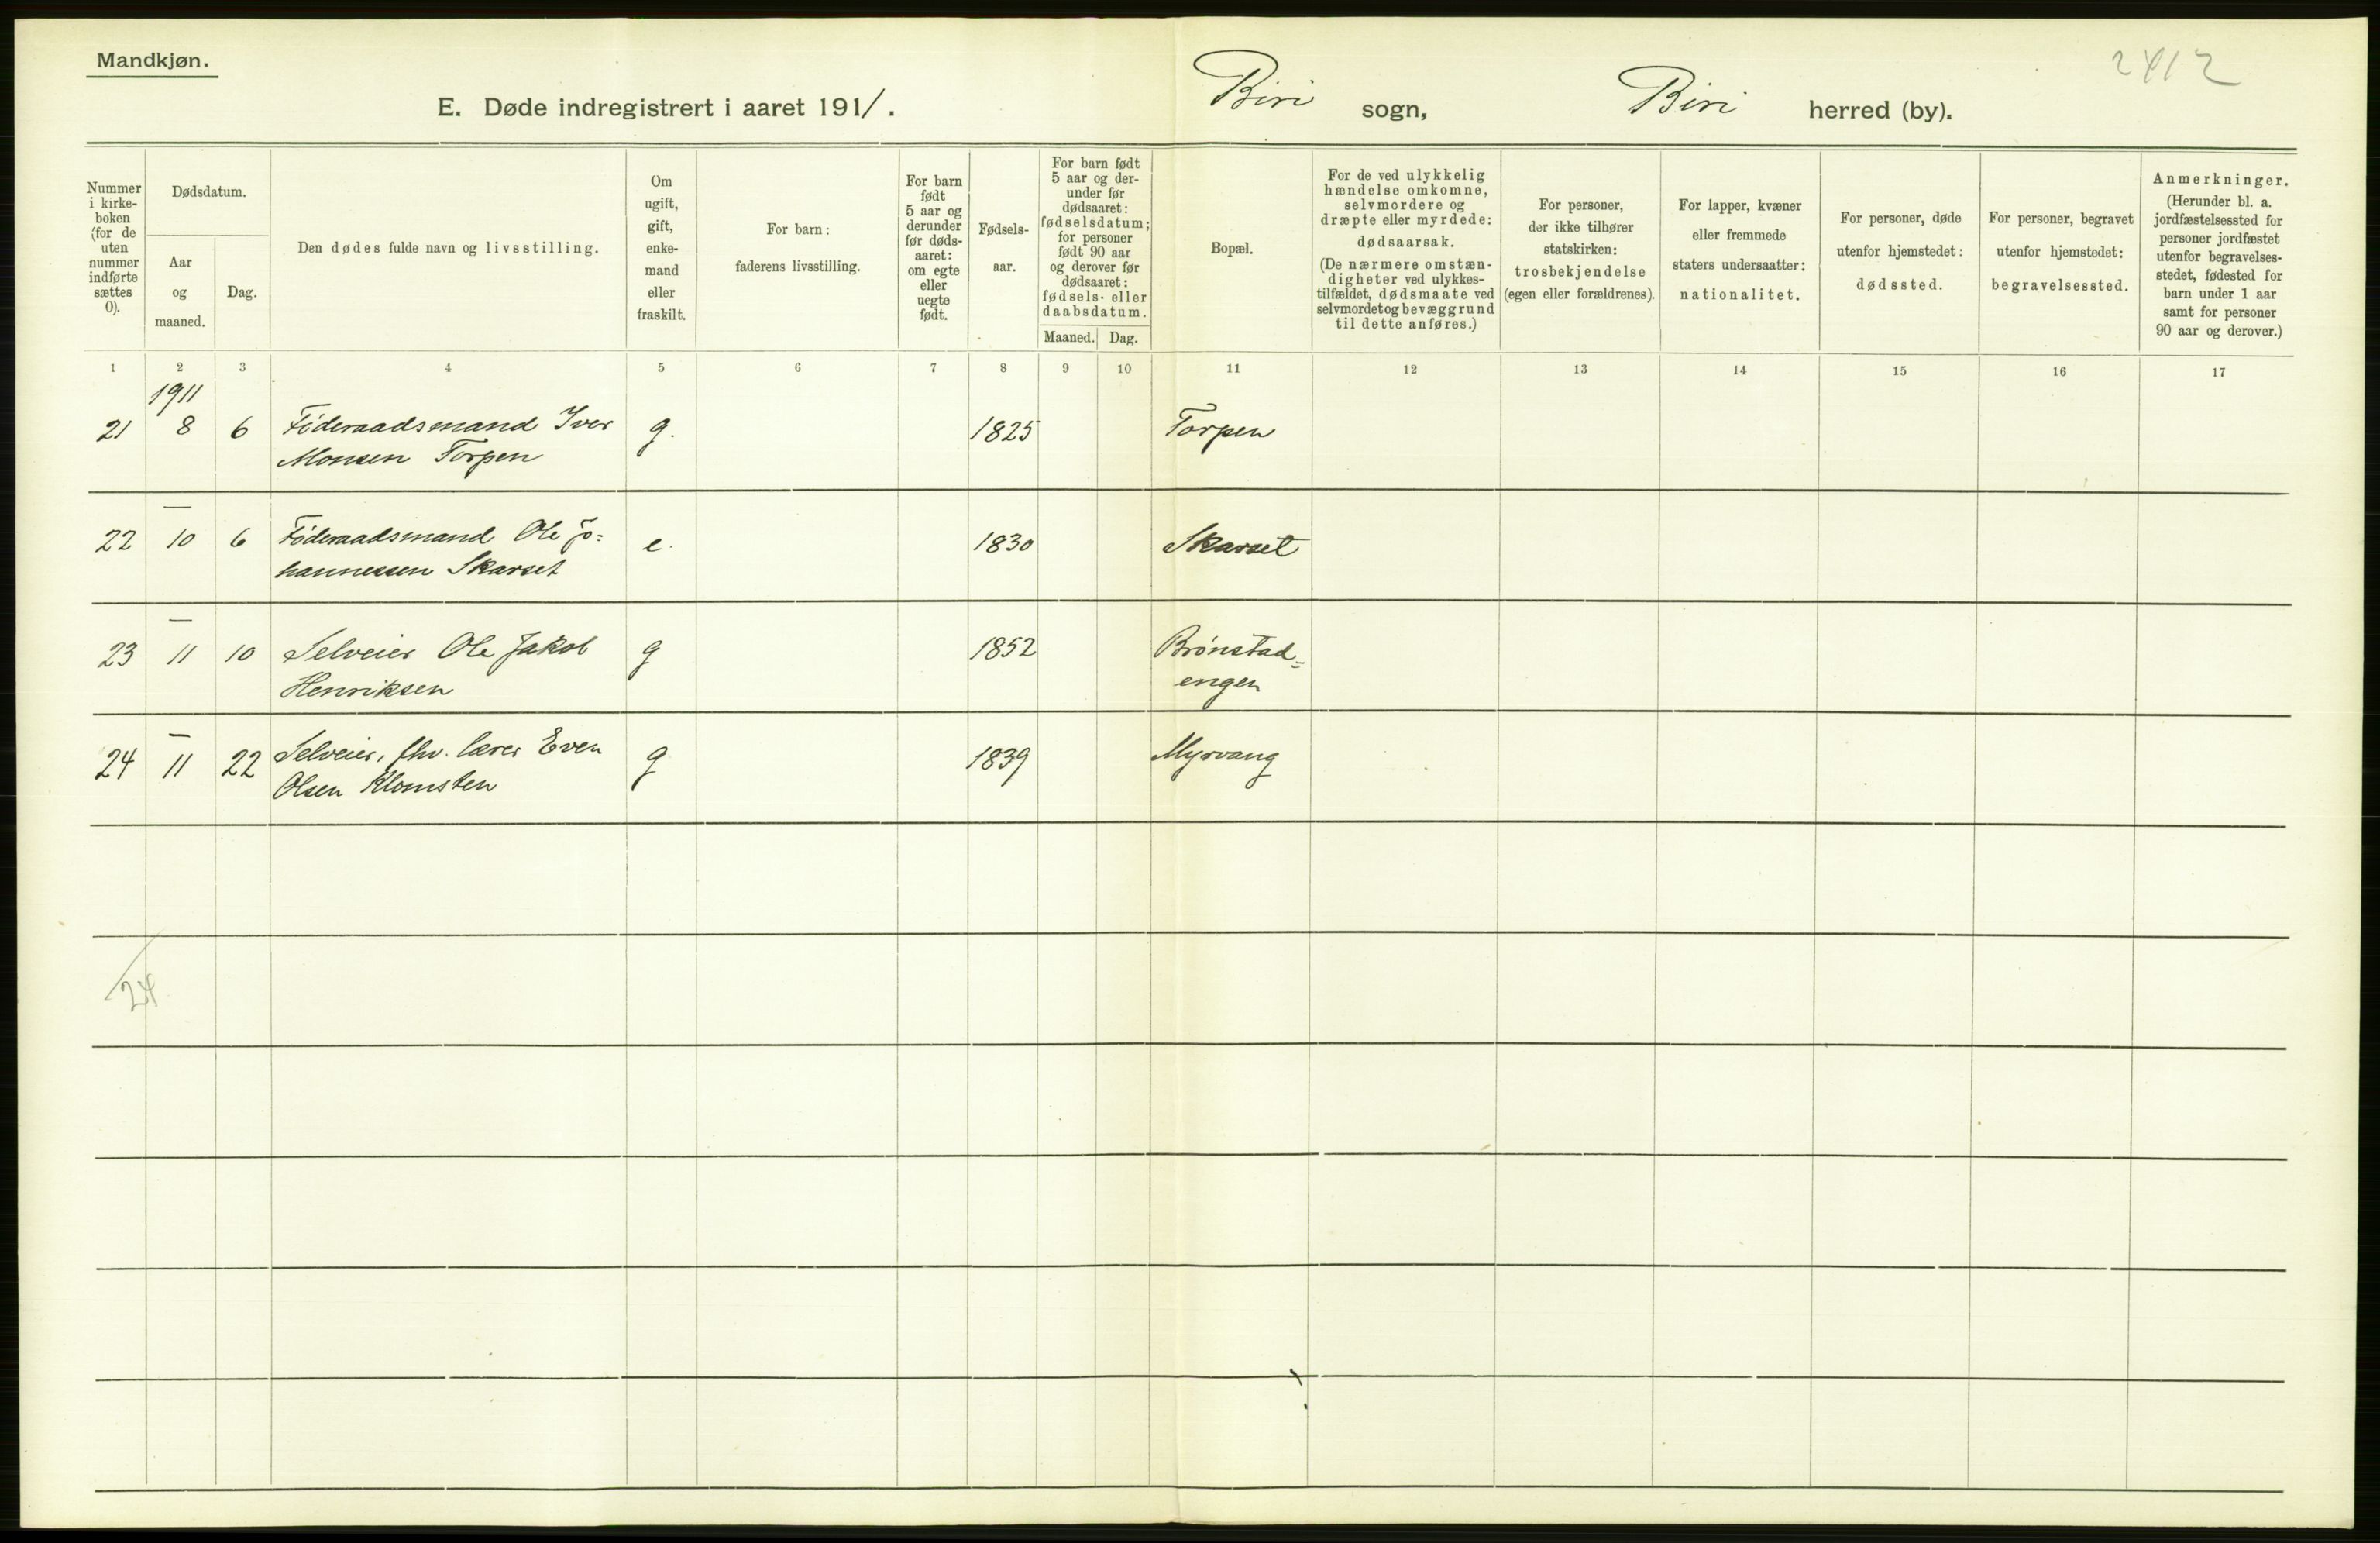 Mandkjøn.
2412
E. Døde indregistrert i aaret 1911.
Biri sogn, Biri herred (by).
Nummer
i kirke-
boken
(for de
uten
nummer
indførte
sættes
0).
Dødsdatum.
Aar
og
maaned.
Dag.
Den dødes fulde navn og livsstilling.
Om
ugift,
gift,
enke-
mand
eller
fraskilt.
For barn:
faderens livsstilling.
For barn
født
5 aar og
derunder
før døds-
aaret:
om egte
eller
uegte
født.
Fødsels-
aar.
For barn født
5 aar og der-
under før
dødsaaret:
fødselsdatum;
for personer
født 90 aar
og derover før
dødsaaret:
fødsels- eller
daabsdatum.
Maaned. Dag.
Bopæl.
For de ved ulykkelig
hændelse omkomne,
selvmordere og
dræpte eller myrdede:
dødsaarsak.
(De nærmere omstæn-
digheter ved ulykkes-
tilfældet, dødsmaate ved
selvmordet og bevæggrund
til dette anføres.)
For personer,
der ikke tilhører
statskirken:
trosbekjendelse
(egen eller forældrenes).
For lapper, kvæner
eller fremmede
staters undersaatter:
nationalitet.
For personer, døde
utenfor hjemstedet:
dødssted.
For personer, begravet
utenfor hjemstedet:
begravelsessted.
Anmerkninger.
(Herunder bl. a.
jordfæstelsessted for
personer jordfæstet
utenfor begravelses-
stedet, fødested for
barn under 1 aar
samt for personer
90 aar og derover.)
1 2 3 4 5 6 7 8 9 10 11 12 13 14 15 16 17
1911
21 8 6 Föderaadsmand Iver g. 1825 Torpen
Monsen Torpen
—
22 10 6 Föderaadsmand Ole Jo= e. 1830 Skarset
hannessen Skarset
—
23 11 10 Selveier Ole Jakob g 1852 Brönstad=
Henriksen engen
—
24 11 22 Selveier, fhv. lærer Even g 1839 Myrvang
Olsen Klomsten
24